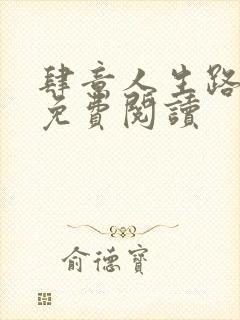 肆意人生路
免費閱讀
俞德寶